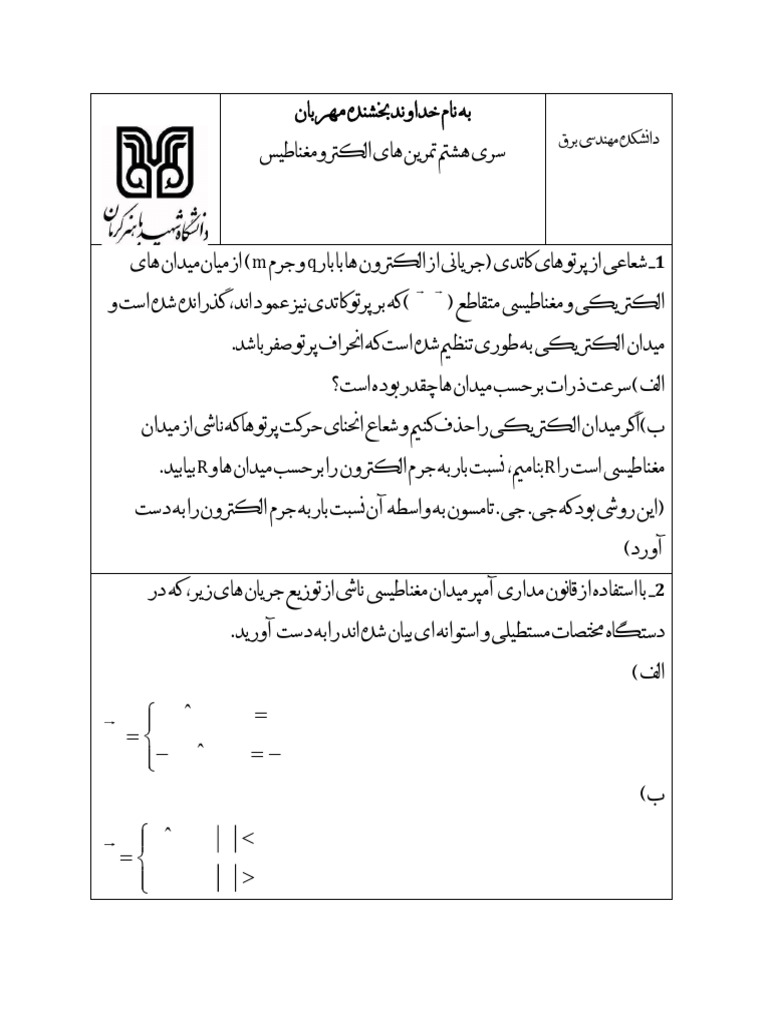 به نام خداوند بخشنده مهربان
دانشکده مهندسی برق
سری هشتم تمرین های الکترومغناطیس
دانشگاه شهید باهنر کرمان
1ـ شعاعی از پرتوهای کاتدی (جریانی از الکترون ها با بار q و جرم m) از میان میدان های
الکتریکی و مغناطیسی متقاطع ( → → ) که بر پرتو کاتدی نیز عمود اند، گذرانده شده است و
میدان الکتریکی به طوری تنظیم شده است که انحراف پرتو صفر باشد.
الف) سرعت ذرات بر حسب میدان ها چقدر بوده است؟
ب) اگر میدان الکتریکی را حذف کنیم و شعاع انحنای حرکت پرتوها که ناشی از میدان
مغناطیسی است را R بنامیم، نسبت بار به جرم الکترون را بر حسب میدان ها و R بیابید.
(این روشی بود که جی. جی. تامسون به واسطه آن نسبت بار به جرم الکترون را به دست
آورد)
2ـ با استفاده از قانون مداری آمپر میدان مغناطیسی ناشی از توزیع جریان های زیر، که در
دستگاه مختصات مستطیلی و استوانه ای بیان شده اند را به دست آورید.
الف)
→ = { ^ =
− ^ = −
ب)
→ = { ^ | | <
| | >